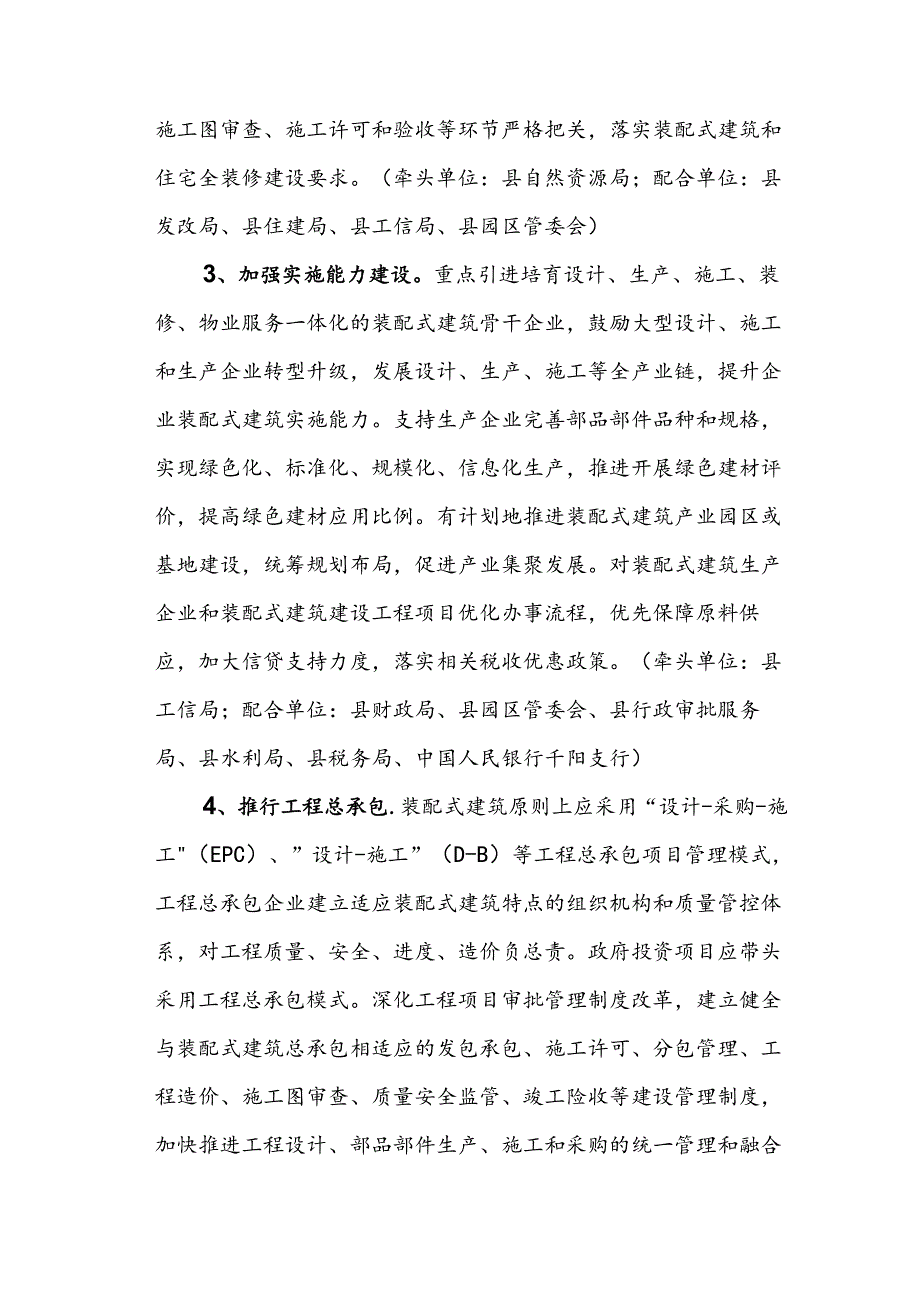 施工图审查、施工许可和验收等环节严格把关，落实装配式建筑和
住宅全装修建设要求。（牵头单位：县自然资源局；配合单位：县
发改局、县住建局、县工信局、县园区管委会）
3、加强实施能力建设。重点引进培育设计、生产、施工、装
修、物业服务一体化的装配式建筑骨干企业，鼓励大型设计、施工
和生产企业转型升级，发展设计、生产、施工等全产业链，提升企
业装配式建筑实施能力。支持生产企业完善部品部件品种和规格，
实现绿色化、标准化、规模化、信息化生产，推进开展绿色建材评
价，提高绿色建材应用比例。有计划地推进装配式建筑产业园区或
基地建设，统筹规划布局，促进产业集聚发展。对装配式建筑生产
企业和装配式建筑建设工程项目优化办事流程，优先保障原料供
应，加大信贷支持力度，落实相关税收优惠政策。（牵头单位：县
工信局；配合单位：县财政局、县园区管委会、县行政审批服务
局、县水利局、县税务局、中国人民银行千阳支行）
4、推行工程总承包.装配式建筑原则上应采用“设计-采购-施
工"（EPC）、”设计-施工”（D-B）等工程总承包项目管理模式，
工程总承包企业建立适应装配式建筑特点的组织机构和质量管控体
系，对工程质量、安全、进度、造价负总责。政府投资项目应带头
采用工程总承包模式。深化工程项目审批管理制度改革，建立健全
与装配式建筑总承包相适应的发包承包、施工许可、分包管理、工
程造价、施工图审查、质量安全监管、竣工险收等建设管理制度，
加快推进工程设计、部品部件生产、施工和采购的统一管理和融合